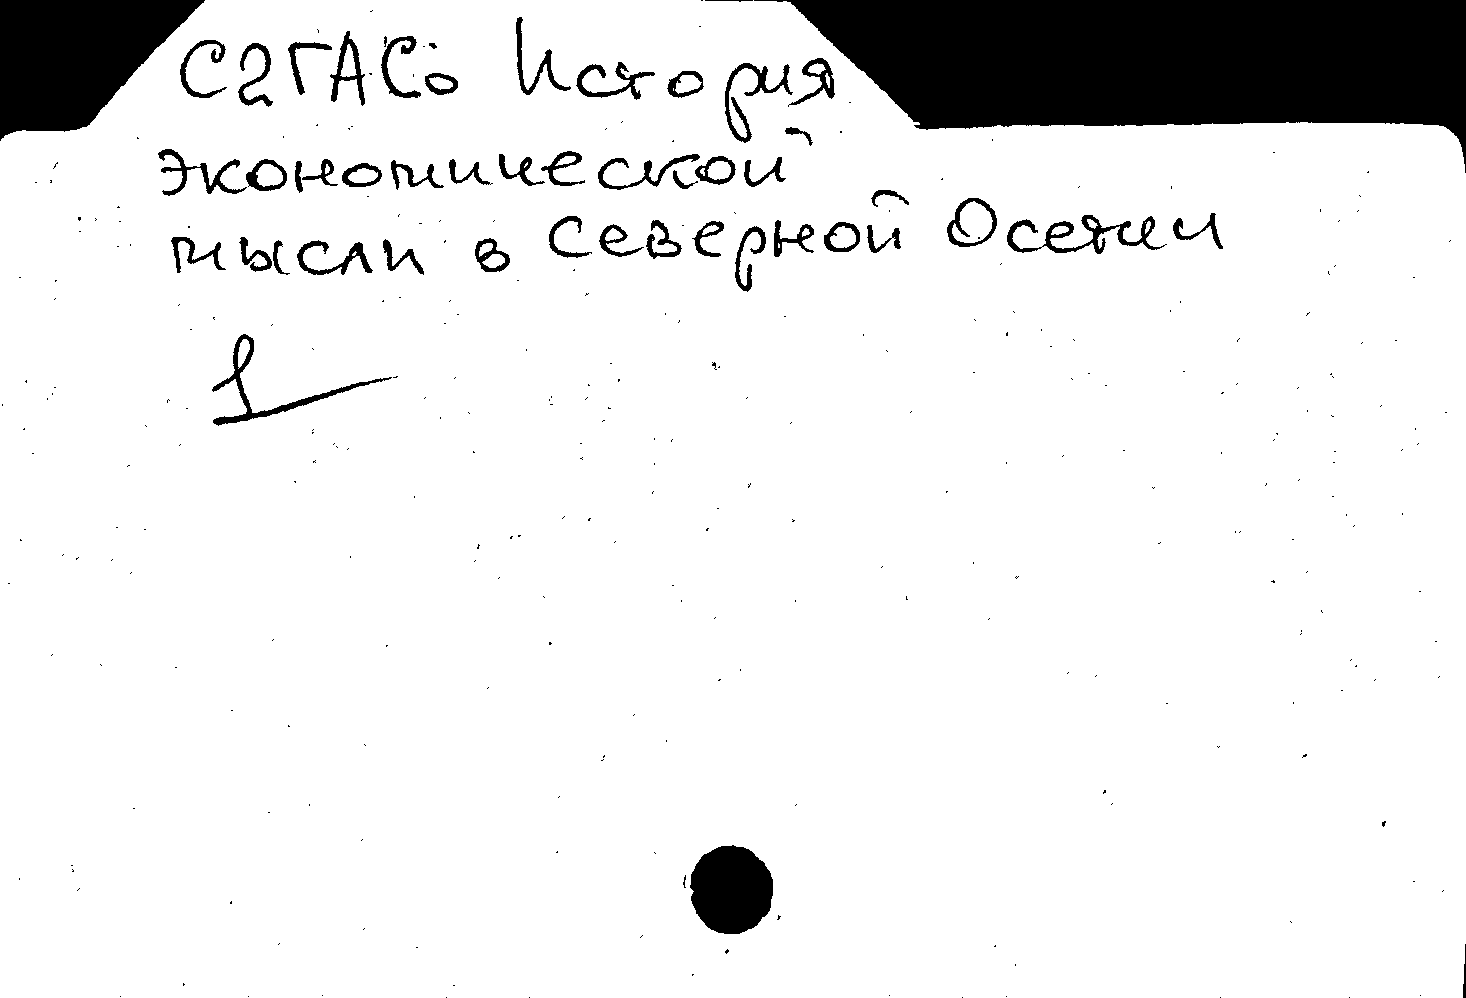 С2ГАСо История
экономической
мысли в Северной Осетии
1